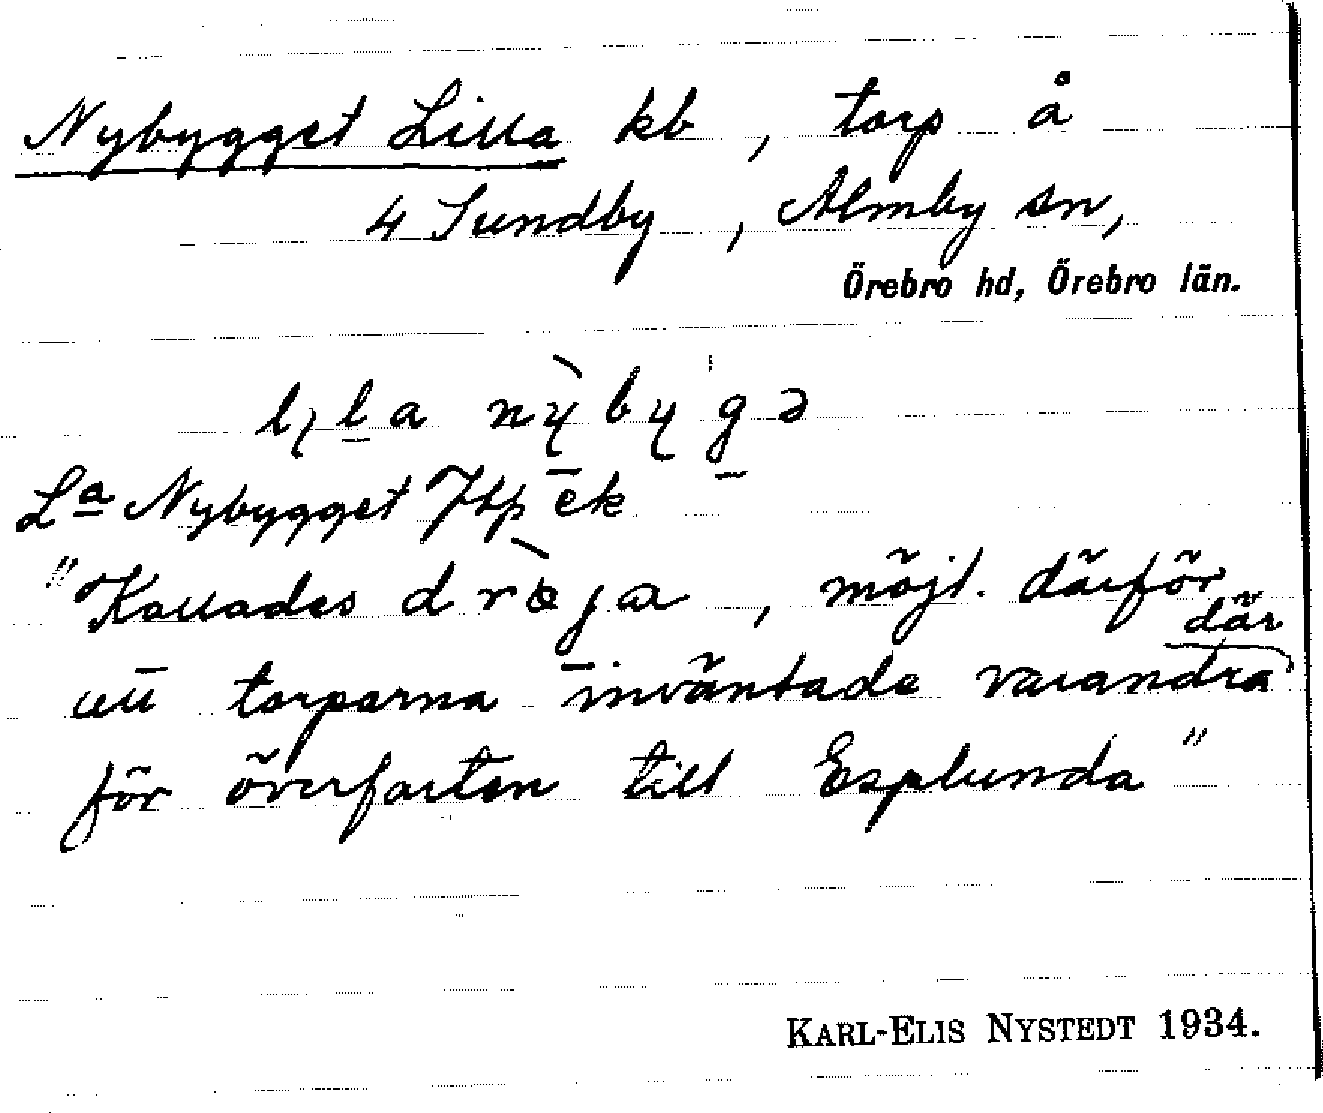 Nybygget Lilla kb, torp å
4 Sundby, Almby sn,
Örebro hd, Örebro län.
lıl̲a nỳbyg̲ə
Lª Nybygget Jtp ek
"Kallades dræ̀ja, möjl. därför
att torparna där inväntade varandra
för överfarten till Esplunda"
KARL-ELIS NYSTEDT 1934.